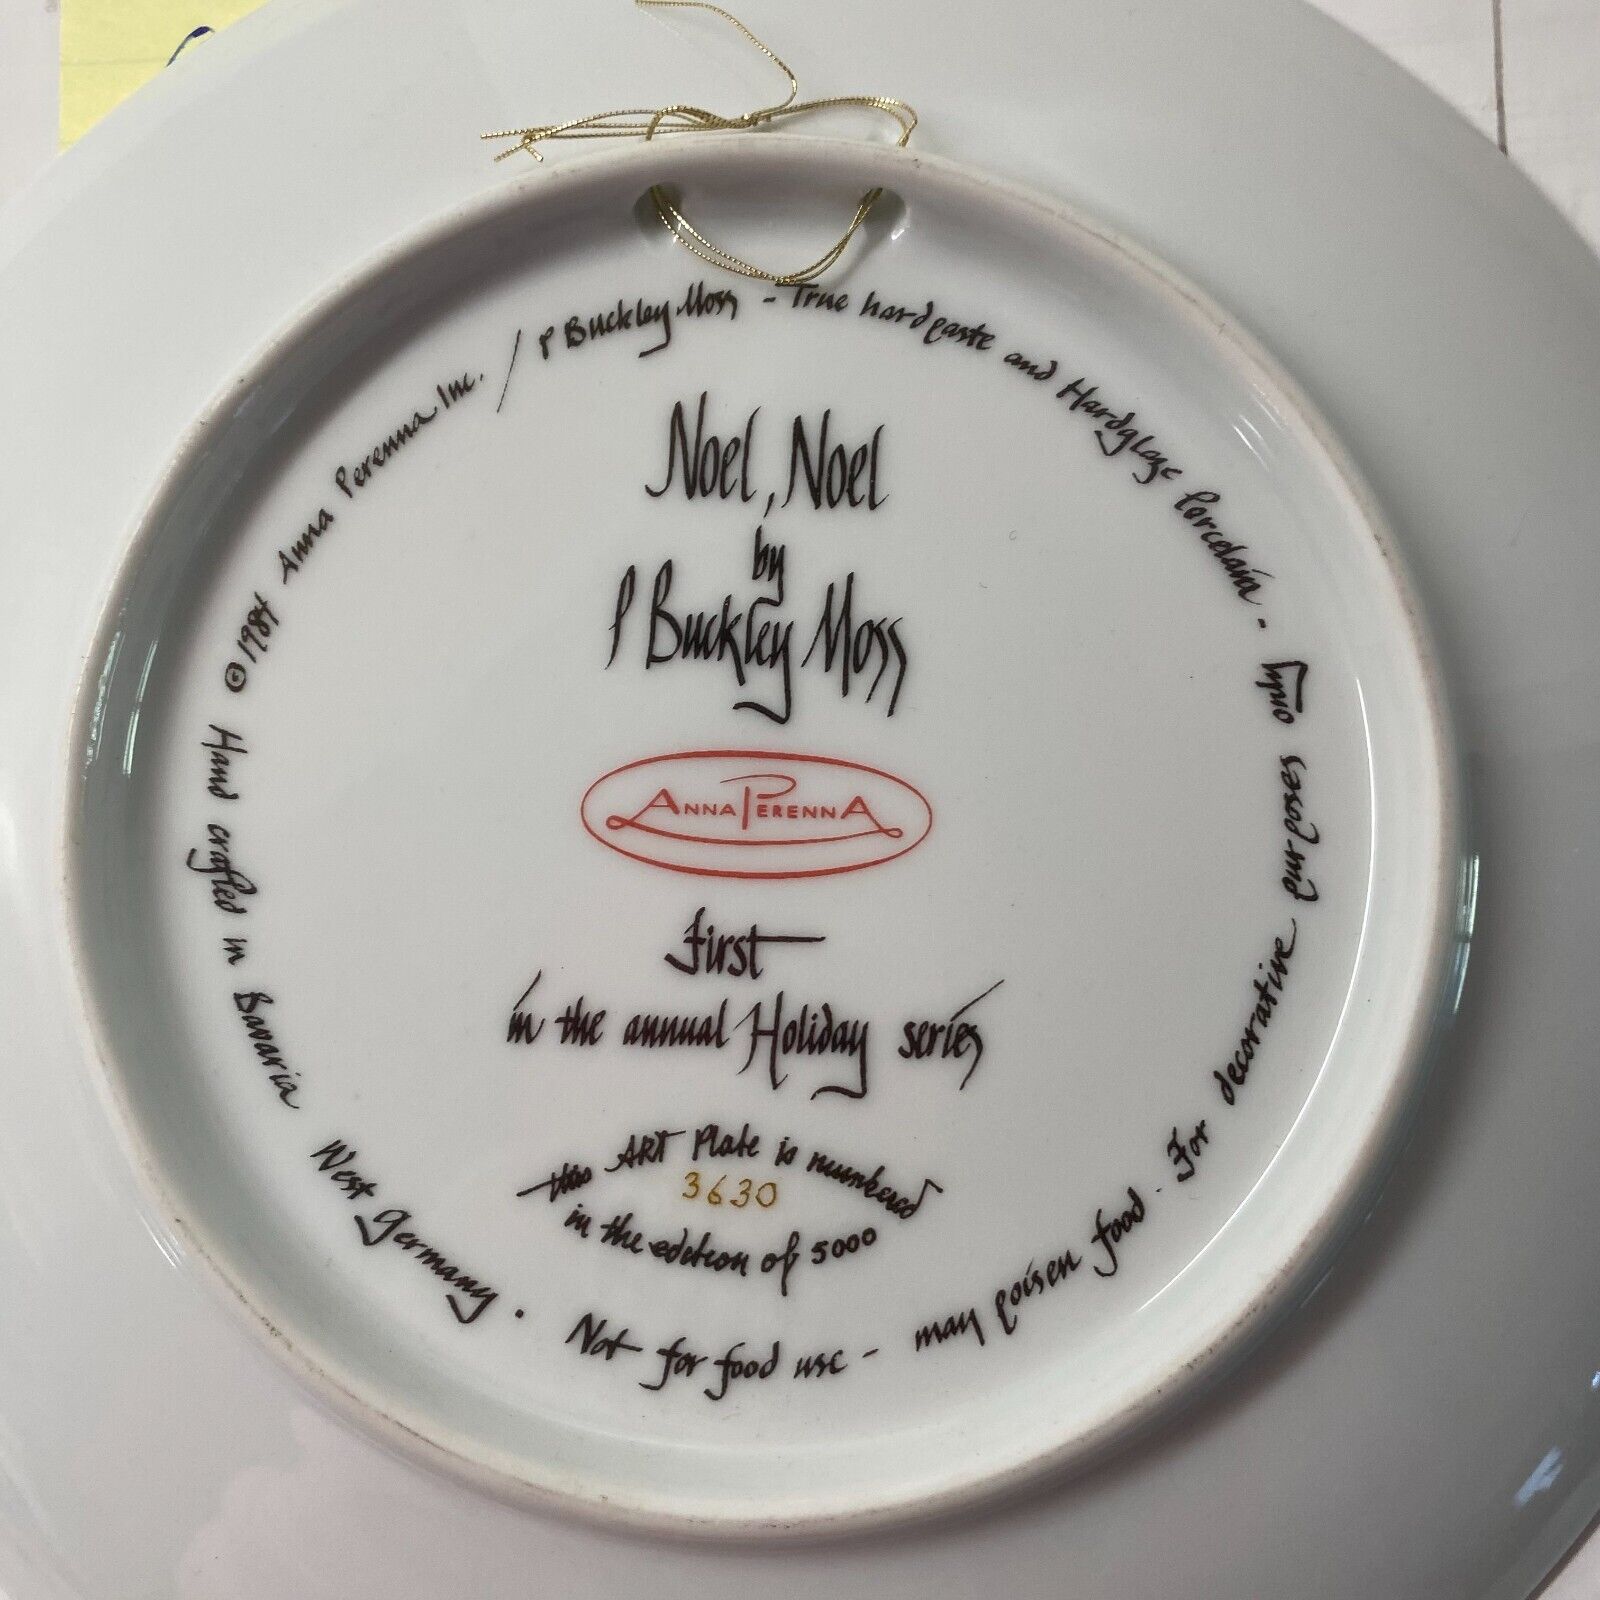 Noel, Noel
by
P Buckley Moss
ANNA PERENNA
First
in the annual Holiday series
this ART Plate is numbered
3630
in the edition of 5000
© 1984 Anna Perenna Inc. / P Buckley Moss - True hardpaste and Hardglaze Porcelain - For decorative purposes only
Hand crafted in Bavaria West Germany . Not for food use - may poisen food .